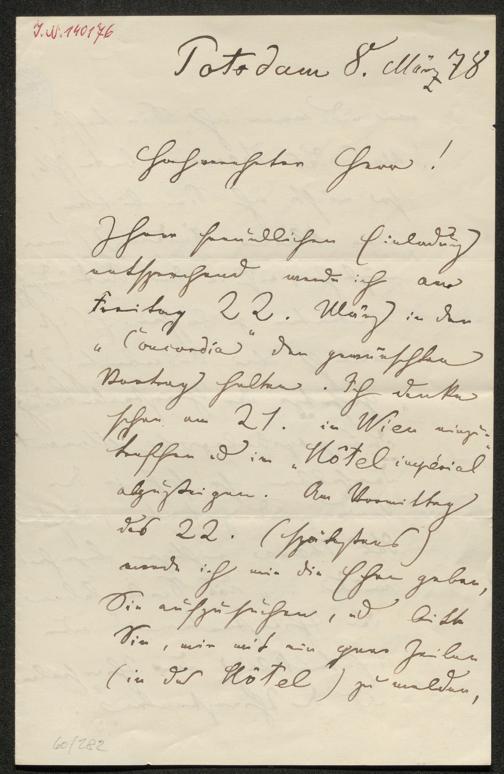 J.N. 140176
Potsdam 8. März 78
Hochverehrter Herr!
Ihrer freundlichen Einladung
entsprechend werde ich am
Freitag 22. März in der
„Concordia“ den gewünschten
Vortrag halten. Ich denke
schon am 21. in Wien einzu-
treffen und im „Hôtel impérial
abzusteigen. Am Vormittag
des 22. (spätestens)
werde ich mir die Ehre geben,
Sie aufzusuchen, und bitte
Sie, mir mit ein paar Zeilen
(in das Hôtel) zu melden,
60/282